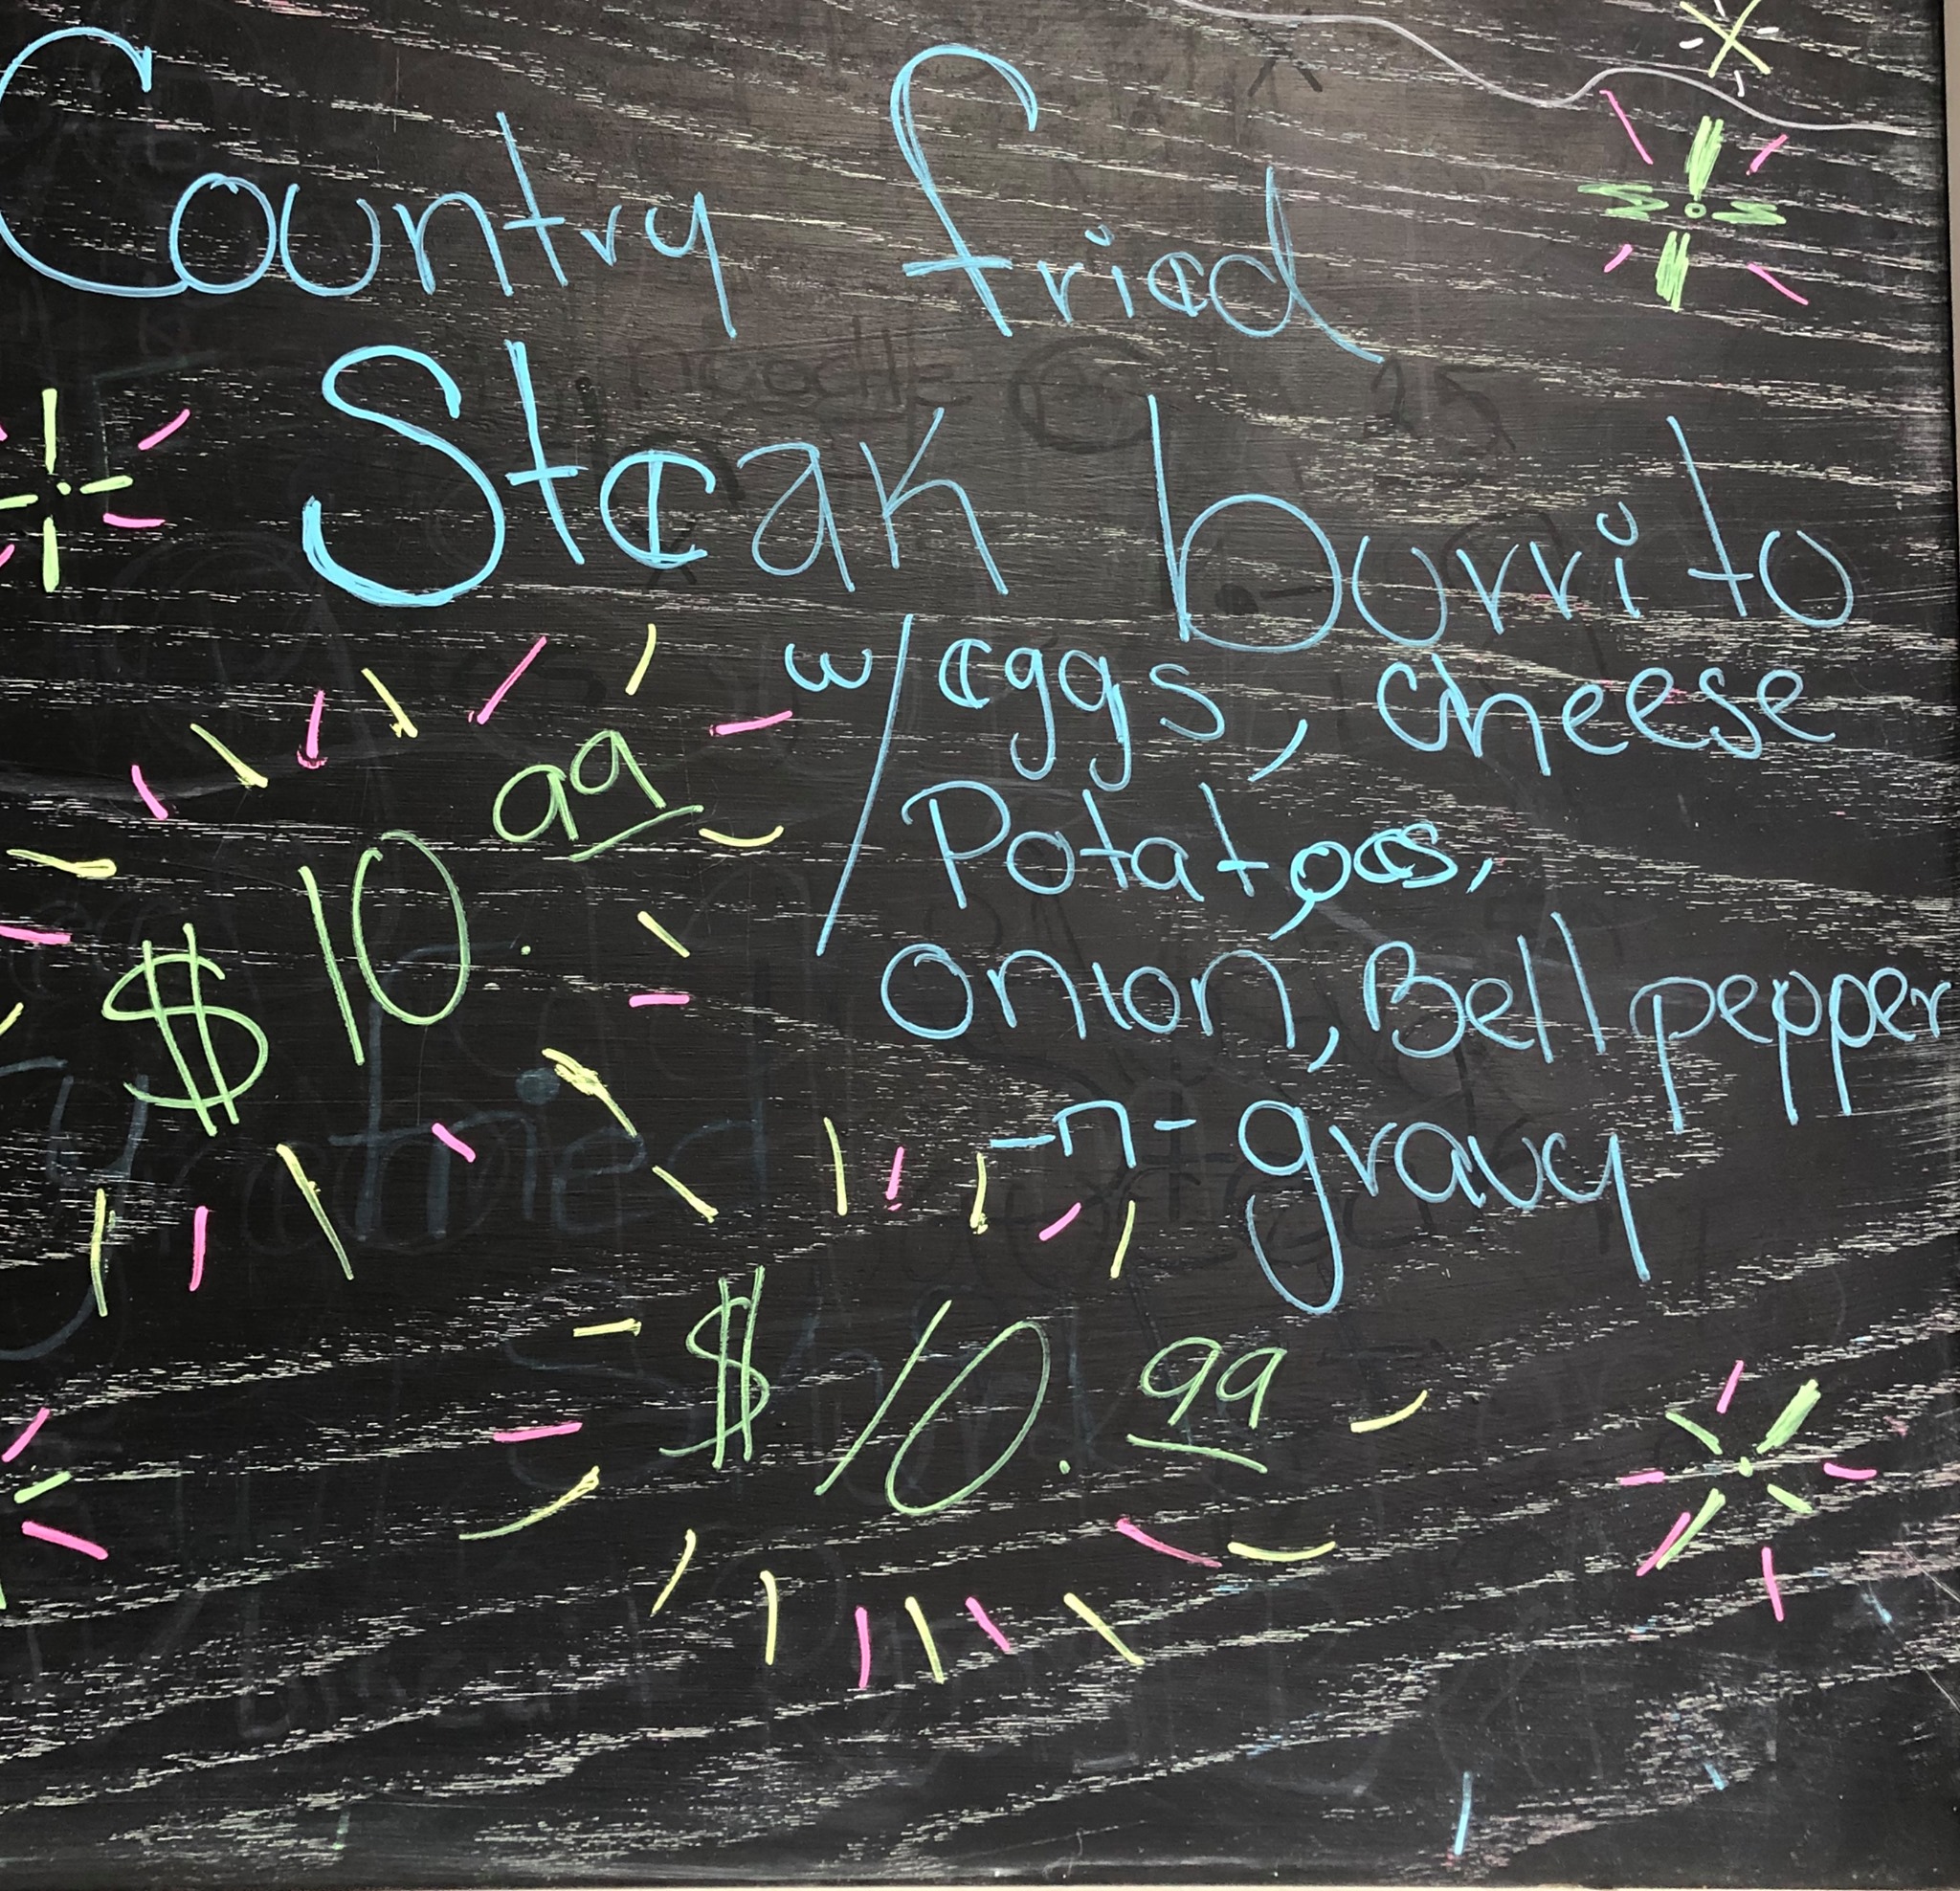 Country fried
Steak burrito
w/ eggs, cheese
Potatoes,
onion, Bell pepper
-n- gravy
$10.99
$10.99